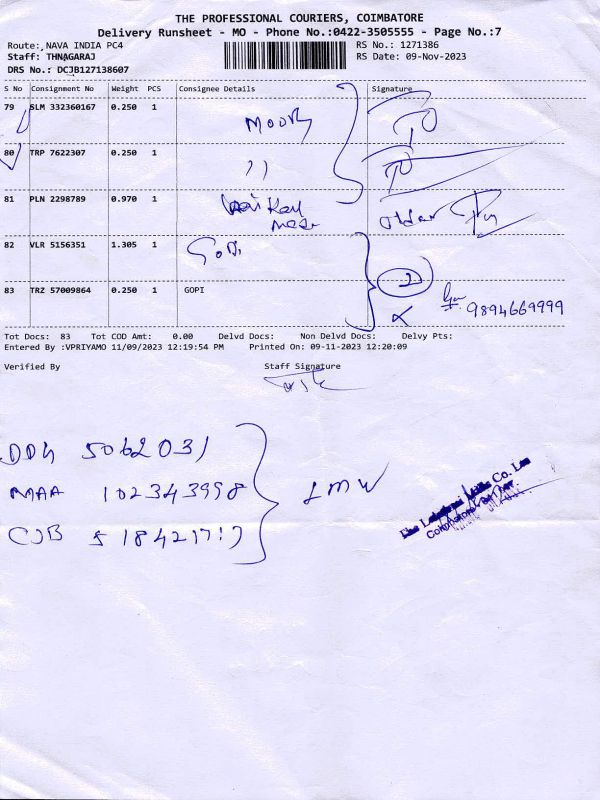 THE PROFESSIONAL COURIERS, COIMBATORE
Delivery Runsheet - MO - Phone No.:0422-3505555 - Page No.:7
Route:,NAVA INDIA PC4 RS No.: 1271386
Staff: THNAGARAJ RS Date: 09-Nov-2023
DRS No.: DCJB127138607
S No Consignment No Weight PCS Consignee Details Signature
79 SLM 332360167 0.250 1
80 TRP 7622307 0.250 1 "
81 PLN 2298789 0.970 1
82 VLR 5156351 1.305 1 GOPI
83 TRZ 57009864 0.250 1 GOPI 2
9894669999
Tot Docs: 83 Tot COD Amt: 0.00 Delvd Docs: Non Delvd Docs: Delvy Pts:
Entered By :VPRIYAMO 11/09/2023 12:19:54 PM Printed On: 09-11-2023 12:20:09
Verified By Staff Signature
5062031
MAA 102343998 LMW
CJB
Co. Ltd